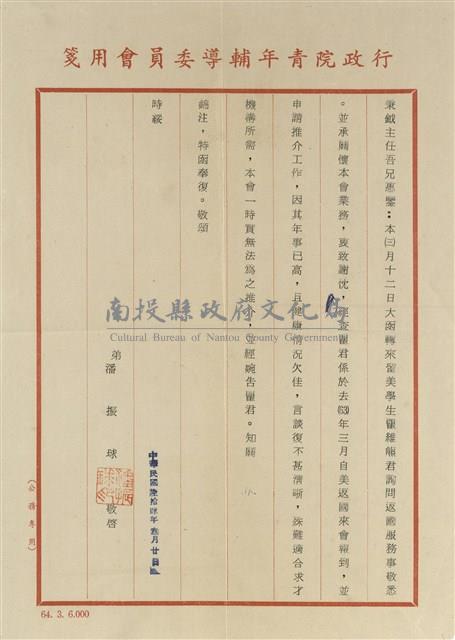 行政院青年輔導委員會用箋
秉鉞主任吾兄惠鑒：本㈢月十二日大函轉來留美學生瞿維熊君詢問返國服務事敬悉
。並承關懷本會業務，至致謝忱，經查瞿君係於去(63)年三月自美返國來會報到，並
申請推介工作，因其年事已高，且健康情況欠佳，言談復不甚清晰，殊難適合求才
機構所需，本會一時實無法為之推介，並經婉告瞿君。知關
錦注，特函奉復。敬頌
時綏
弟
潘振球
敬啓
中華民國陸拾肆年叁月廿日
（公務專用）
64. 3. 6.000
南投縣政府文化局
Cultural Bureau of Nantou County Government